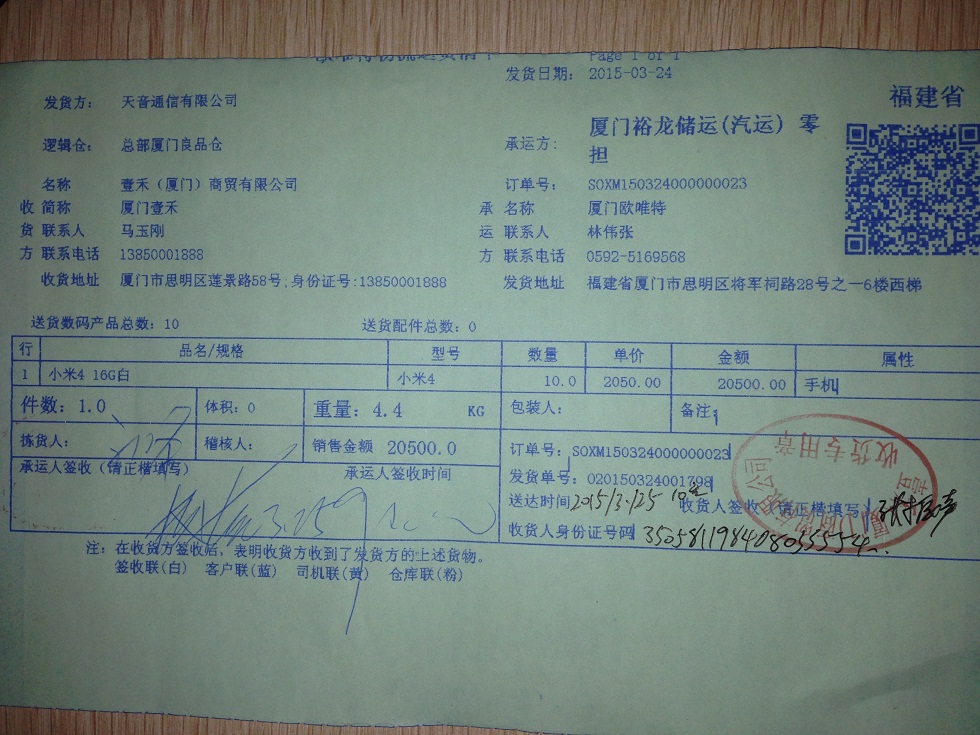 Page 1 of 1
发货日期： 2015-03-24
福建省
发货方： 天音通信有限公司
逻辑仓： 总部厦门良品仓
承运方： 厦门裕龙储运(汽运) 零担
名称 壹禾（厦门）商贸有限公司 订单号： SOXM150324000000023
收 简称 厦门壹禾 承 名称 厦门欧唯特
货 联系人 马玉刚 运 联系人 林伟张
方 联系电话 13850001888 方 联系电话 0592-5169568
收货地址 厦门市思明区莲景路58号;身份证号:13850001888 发货地址 福建省厦门市思明区将军祠路28号之一6楼西梯
送货数码产品总数：10 送货配件总数：0
行 品名/规格 型号 数量 单价 金额 属性
1 小米4 16G白 小米4 10.0 2050.00 20500.00 手机
件数：1.0 体积：0 重量：4.4 KG 包装人： 备注：
拣货人： 稽核人： 销售金额 20500.0 订单号： SOXM150324000000023
承运人签收（请正楷填写） 承运人签收时间 发货单号：020150324001798
3.25
送达时间 2015/3/25 收货人签收（请正楷填写）
收货人身份证号码
收货专用章
注：在收货方签收后，表明收货方收到了发货方的上述货物。
签收联(白) 客户联(蓝) 司机联(黄) 仓库联(粉)